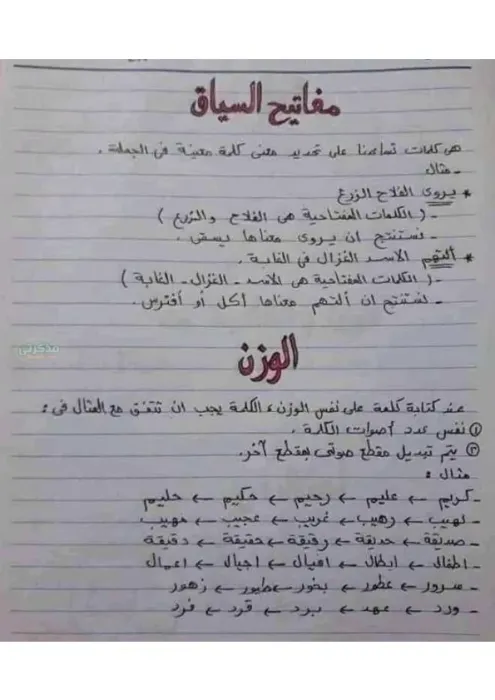 مفاتيح السياق
هى كلمات تساعدنا على تحديد معنى كلمة معينة فى الجملة .
- مثال
* يروى الفلاح الزرع
- ( الكلمات المفتاحية هى الفلاح والزرع )
- نستنتج ان يروى معناها يسقى .
* ألتهم الاسد الغزال فى الغابة .
- ( الكلمات المفتاحية هى الاسد - الغزال - الغابة )
- نستنتج ان ألتهم معناها أكل أو أفترس .
مذكرتي
الوزن
عند كتابة كلمة على نفس الوزن، الكلمة يجب ان تتفق مع المثال فى :
① نفس عدد أصوات الكلمة .
② يتم تبديل مقطع صوتى بمقطع آخر.
مثال :
- كريم ← عليم ← رحيم ← حكيم ← حليم
- لهيب ← رهيب ← غريب ← عجيب ← مهيب
- صديقة ← حديقة ← رقيقة ← حقيقة ← دقيقة
- اطفال ← ابطال ← افيال ← اجيال ← اعمال
- سرور ← عطور ← بخور ← طيور ← زهور
- ورد ← عهد ← برد ← قرد ← فرد